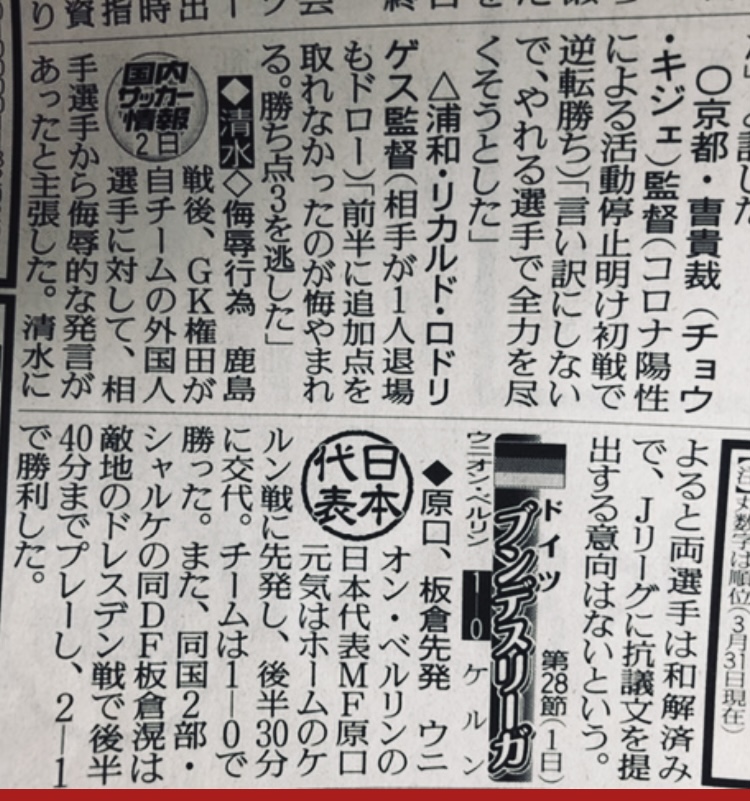 〇京都・曺貴裁（チョウ
・キジェ）監督（コロナ陽性
による活動停止明け初戦で
逆転勝ち）「言い訳にしない
で、やれる選手で全力を尽
くそうとした」
△浦和・リカルド・ロドリ
ゲス監督（相手が1人退場
もドロー）「前半に追加点を
取れなかったのが悔やまれ
る。勝ち点3を逃した」
国内
サッカー
情報
2日
◆清水◇侮辱行為 鹿島
戦後、GK権田が
自チームの外国人
選手に対して、相
手選手から侮辱的な発言が
あったと主張した。清水に
【注】丸数字は順位（3月31日現在）
よると両選手は和解済み
で、Jリーグに抗議文を提
出する意向はないという。
ドイツ
ブンデスリーガ
第28節（1日）
ウニオン・ベルリン 1―0 ケルン
日本代表
◆原口、板倉先発 ウニ
オン・ベルリンの
日本代表MF原口
元気はホームのケ
ルン戦に先発し、後半30分
に交代。チームは1―0で
勝った。また、同国2部・
シャルケの同DF板倉滉は
敵地のドレスデン戦で後半
40分までプレーし、2―1
で勝利した。